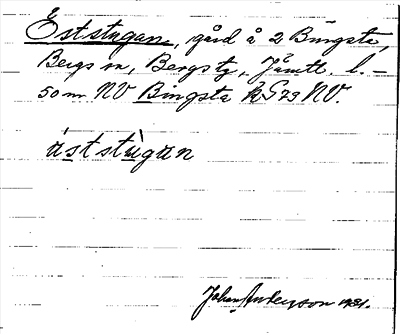 Eststugan, gård å 2 Bingsta,
Bergs sn, Bergs tg, Jämtl. l. –
50 m NV Bingsta k S73 NV.
áststùgan
Johan Anderson 1931.